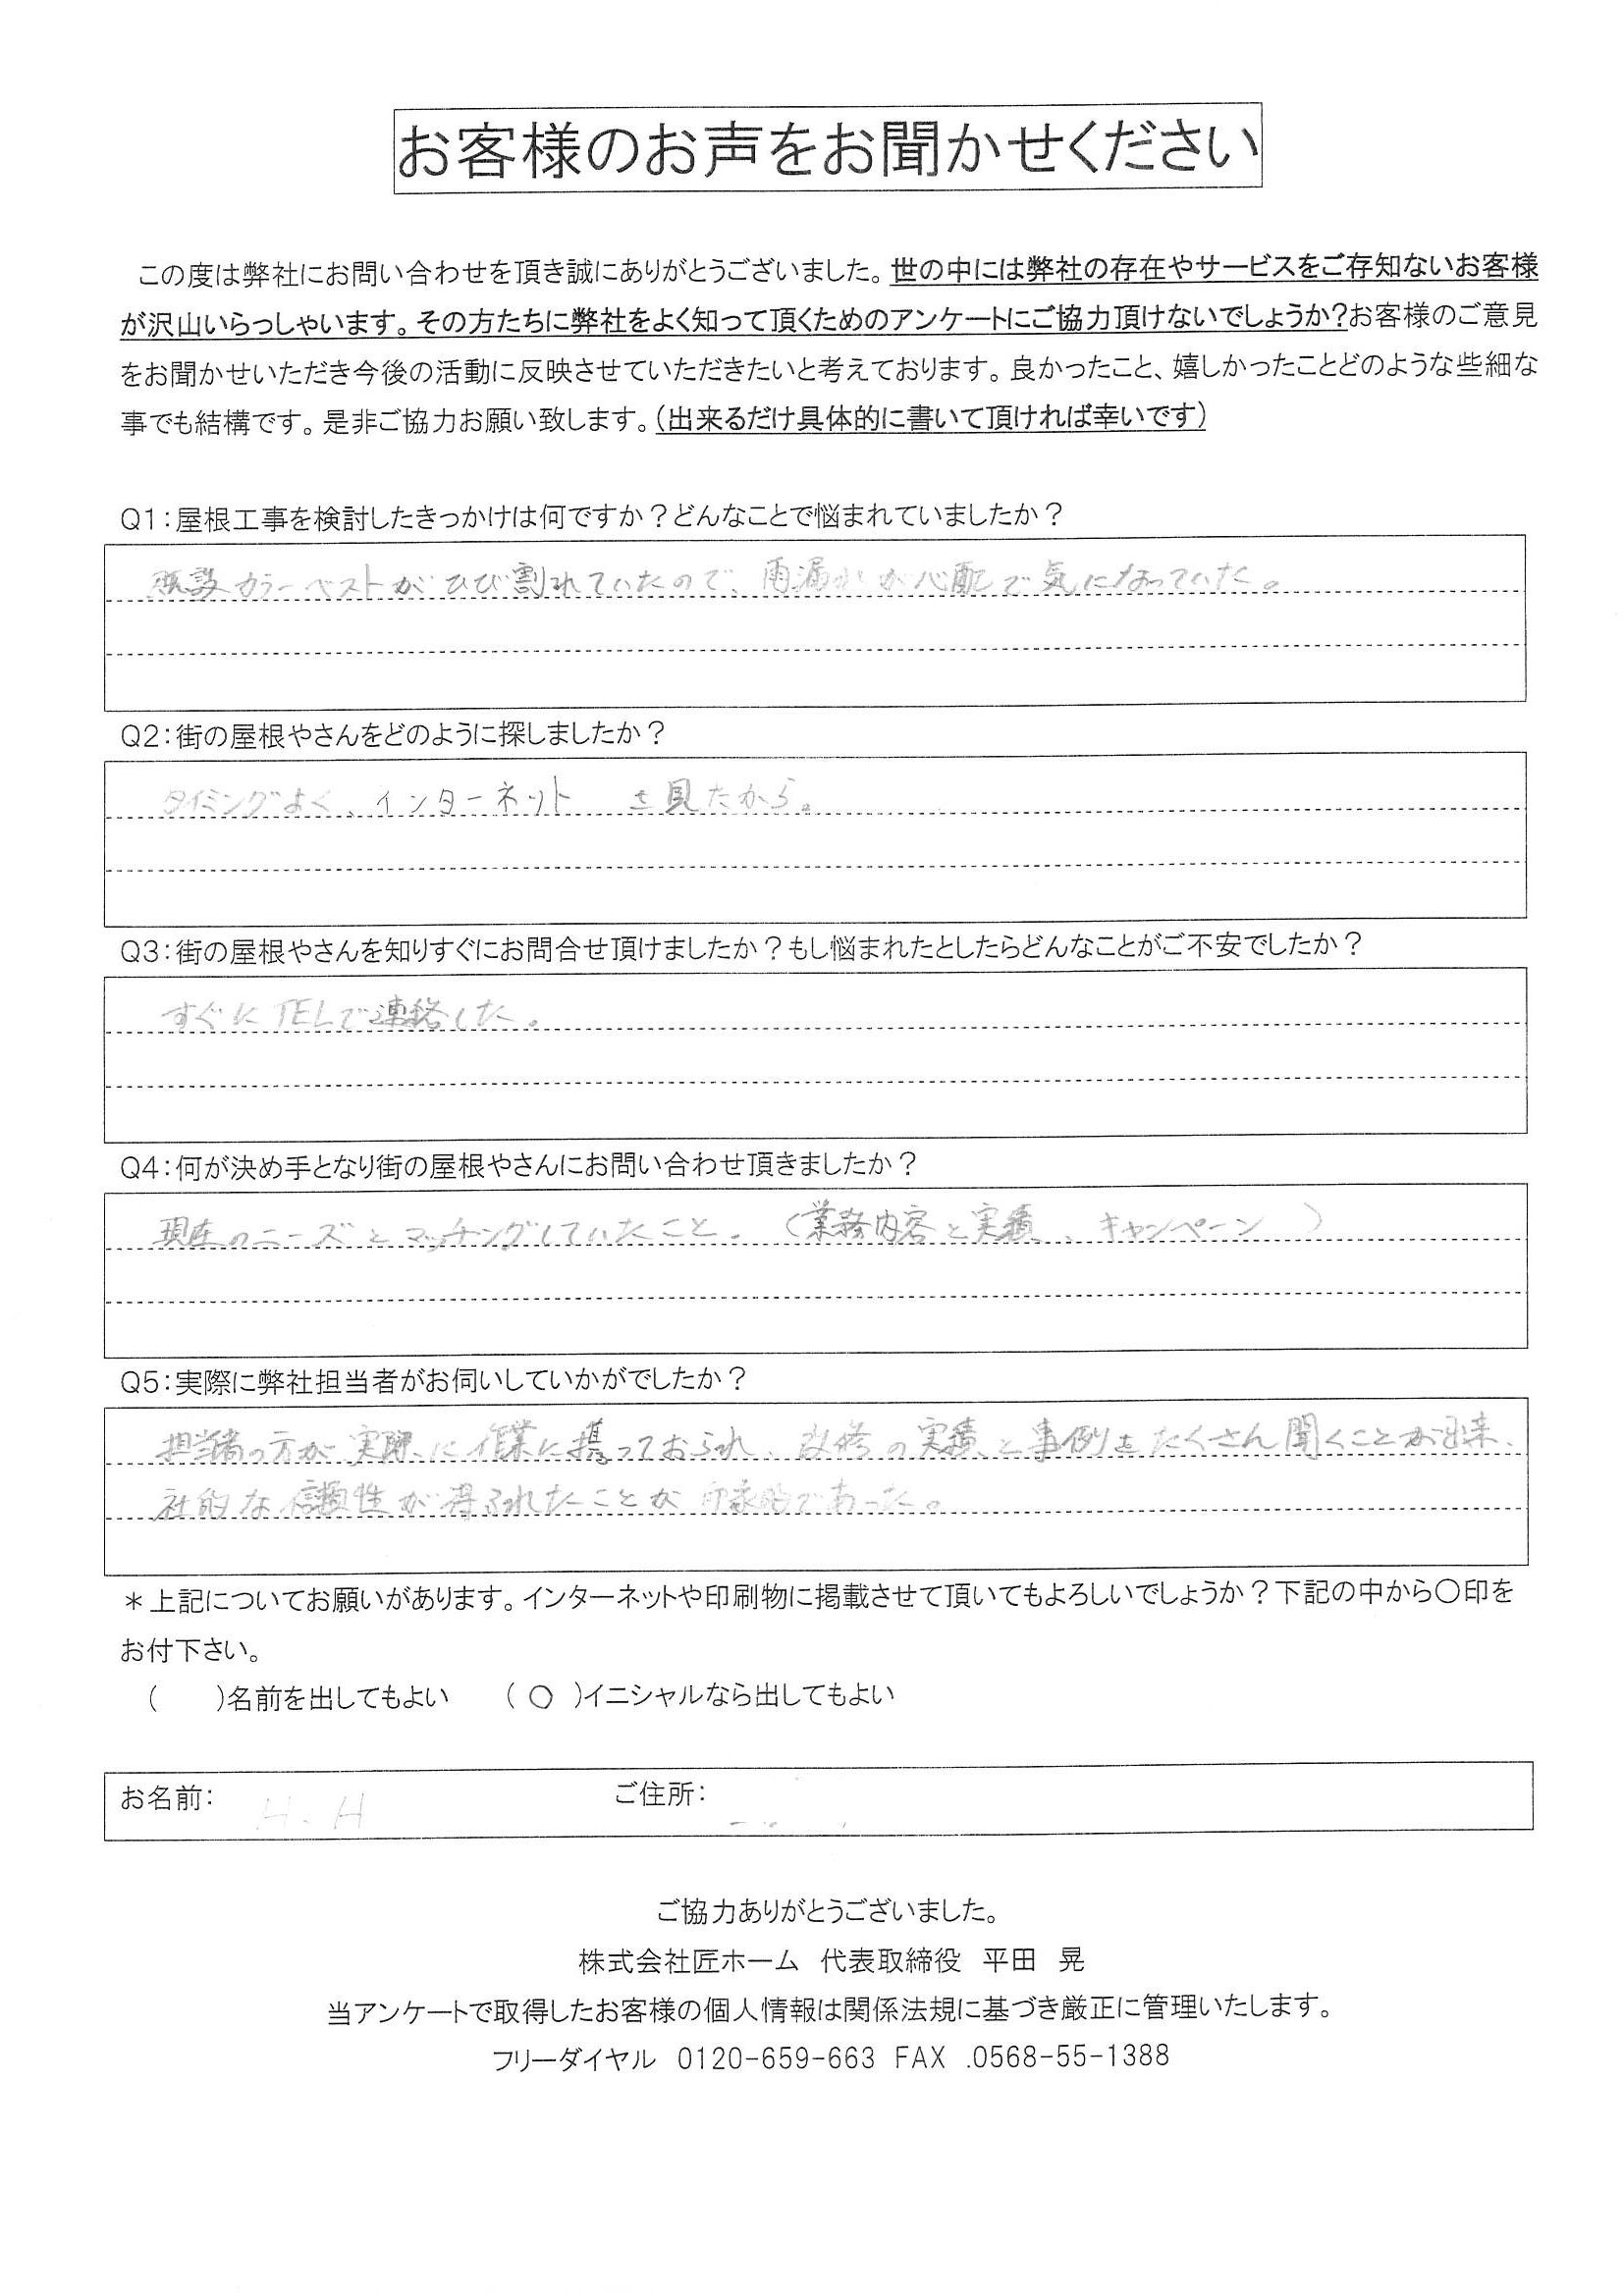 お客様のお声をお聞かせください
この度は弊社にお問い合わせを頂き誠にありがとうございました。世の中には弊社の存在やサービスをご存知ないお客様
が沢山いらっしゃいます。その方たちに弊社をよく知って頂くためのアンケートにご協力頂けないでしょうか?お客様のご意見
をお聞かせいただき今後の活動に反映させていただきたいと考えております。良かったこと、嬉しかったことどのような些細な
事でも結構です。是非ご協力お願い致します。(出来るだけ具体的に書いて頂ければ幸いです)
Q1:屋根工事を検討したきっかけは何ですか?どんなことで悩まれていましたか?
既設カラーベストがひび割れていたので、雨漏れが心配で気になっていた。
Q2:街の屋根やさんをどのように探しましたか?
タイミングよく、インターネット を見たから。
Q3:街の屋根やさんを知りすぐにお問合せ頂けましたか?もし悩まれたとしたらどんなことがご不安でしたか?
すぐにTELで連絡した。
Q4:何が決め手となり街の屋根やさんにお問い合わせ頂きましたか?
現在のニーズとマッチングしていたこと。(業務内容と実績、キャンペーン )
Q5:実際に弊社担当者がお伺いしていかがでしたか?
担当者の方が実際に作業に携っておられ、改修の実績と事例をたくさん聞くことが出来、
社的な信頼性が得られたことが印象的であった。
*上記についてお願いがあります。インターネットや印刷物に掲載させて頂いてもよろしいでしょうか?下記の中から〇印を
お付下さい。
( )名前を出してもよい (〇)イニシャルなら出してもよい
お名前: H.H ご住所:
ご協力ありがとうございました。
株式会社匠ホーム 代表取締役 平田 晃
当アンケートで取得したお客様の個人情報は関係法規に基づき厳正に管理いたします。
フリーダイヤル 0120-659-663 FAX .0568-55-1388